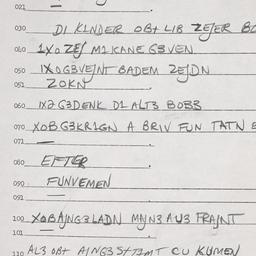 021
030 DI KINDER OBT LIB ZEJER BO
040 1X0 ZEJ MIKANE G3VEN
050 IXOG3VEJNT BADEM ZEJDN
051 ZOKN
060 IXO G3DENK DI ALT3 BOBB
070 XOB G3KRIGN A BRIV FUN TATN E
071
080 EFTER
090 FUNVEMEN
091
100 XOBAJNG3LADN MAJN3 AU3 FRAJNT
101
110 AL3 OBT AJNG3STIMT CU KUMEN